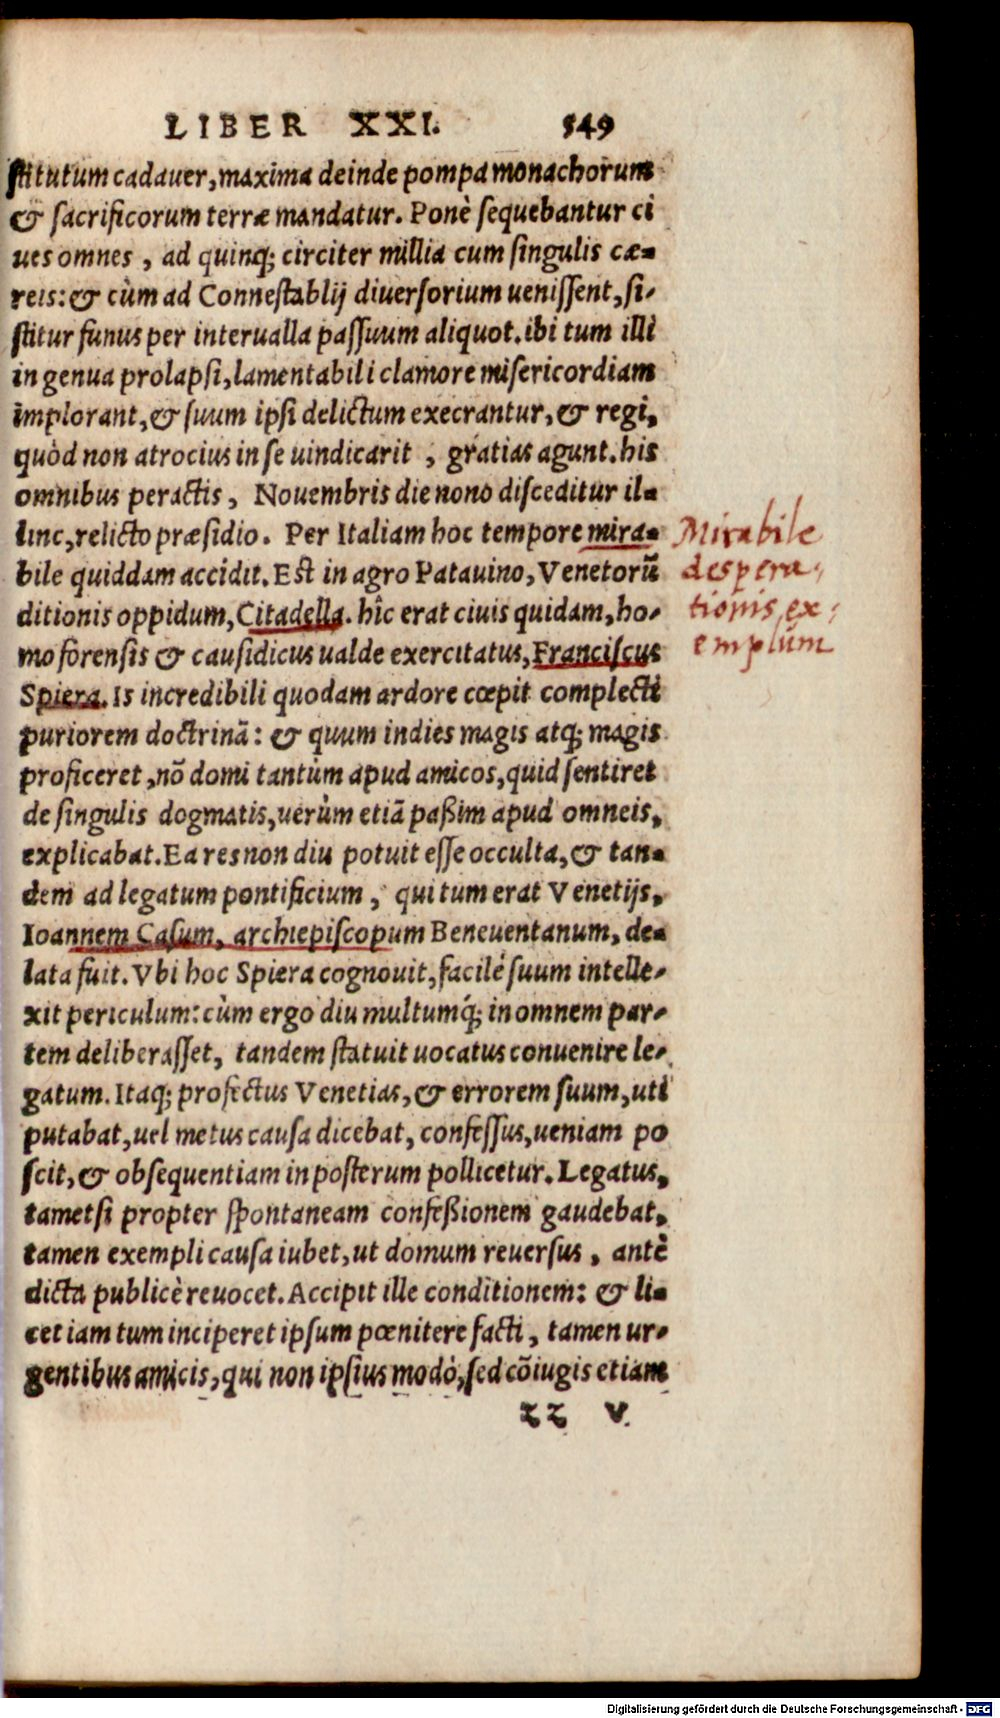 LIBER XXI. 549
stitutum cadauer, maxima deinde pompa monachorum
& sacrificorum terræ mandatur. Ponè sequebantur ci
ues omnes, ad quinq; circiter millia cum singulis cæ-
reis: & cùm ad Connestablij diuersorium uenissent, si-
stitur funus per interualla passuum aliquot. ibi tum illi
in genua prolapsi, lamentabili clamore misericordiam
implorant, & suum ipsi delictum execrantur, & regi,
quòd non atrocius in se uindicarit, gratias agunt. his
omnibus peractis, Nouembris die nono disceditur il-
linc, relicto præsidio. Per Italiam hoc tempore mira-
bile quiddam accidit. Est in agro Patauino, Venetorũ
ditionis oppidum, Citadella. hîc erat ciuis quidam, ho-
mo forensis & causidicus ualde exercitatus, Franciscus
Spiera. Is incredibili quodam ardore cœpit complecti
puriorem doctrinã: & quum indies magis atq; magis
proficeret, nõ domi tantùm apud amicos, quid sentiret
de singulis dogmatis, uerùm etiã paßim apud omneis,
explicabat. Ea res non diu potuit esse occulta, & tan-
dem ad legatum pontificium, qui tum erat Venetijs,
Ioannem Casum, archiepiscopum Beneuentanum, de-
lata fuit. Vbi hoc Spiera cognouit, facilè suum intelle-
xit periculum: cùm ergo diu multumq́; in omnem par-
tem deliberasset, tandem statuit uocatus conuenire le-
gatum. Itaq; profectus Venetias, & errorem suum, uti
putabat, uel metus causa dicebat, confessus, ueniam po
scit, & obsequentiam in posterum pollicetur. Legatus,
tametsi propter spontaneam confeßionem gaudebat,
tamen exempli causa iubet, ut domum reuersus, antè
dicta publicè reuocet. Accipit ille conditionem: & li-
cet iam tum inciperet ipsum pœnitere facti, tamen ur-
gentibus amicis, qui non ipsius modò, sed cõiugis etiam
zz v.
Mirabile
despera-
tionis ex-
emplum
Digitalisierung gefördert durch die Deutsche Forschungsgemeinschaft - DFG